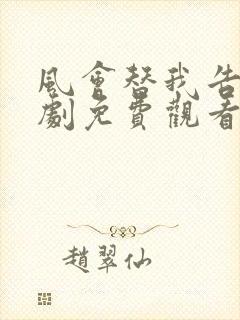 風會替我告
劇免費觀看
趙翠仙